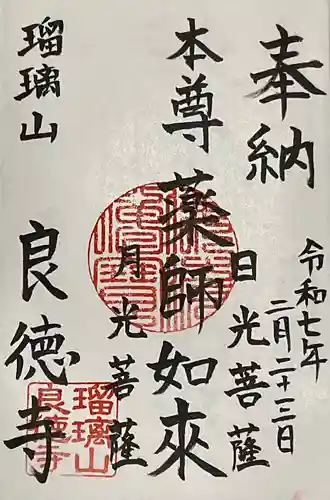 奉納
令和七年
二月二十三日
本尊 薬師如來
日光菩薩
月光菩薩
瑠璃山
良德寺
瑠璃山
良德寺